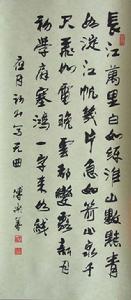 長江萬里白如練淮山數點青
如淀江帆幾片急如箭山泉千
尺飛如電晚雲都變露新月
初學扇塞鴻一字来如線
元曲